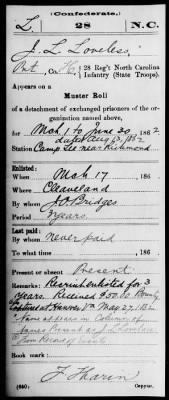 (Confederate.)
L. 28 N.C.
J. L. Loveless
Pvt., Co. H, 28 Reg't North Carolina
Infantry (State Troops).
Appears on a
Muster Roll
of a detachment of exchanged prisoners of the
organization named above,
for Mch 1 to June 30, 1862
dated Aug 13, 1862
Station Camp Lee near Richmond
Enlisted:
When Mch 17, 186
Where Cleaveland
By whom J. O. Bridges
Period 3 years.
Last paid:
By whom never paid
To what time , 186
Present or absent Present
Remarks: Recruit enlisted for 3
years. Received $50.00 Bounty
Captured at Hanover Va May 27, 1862
Name appears in Column of
Names Present as J. L. Lovelace
Book mark:
F Tharin
Copyist.